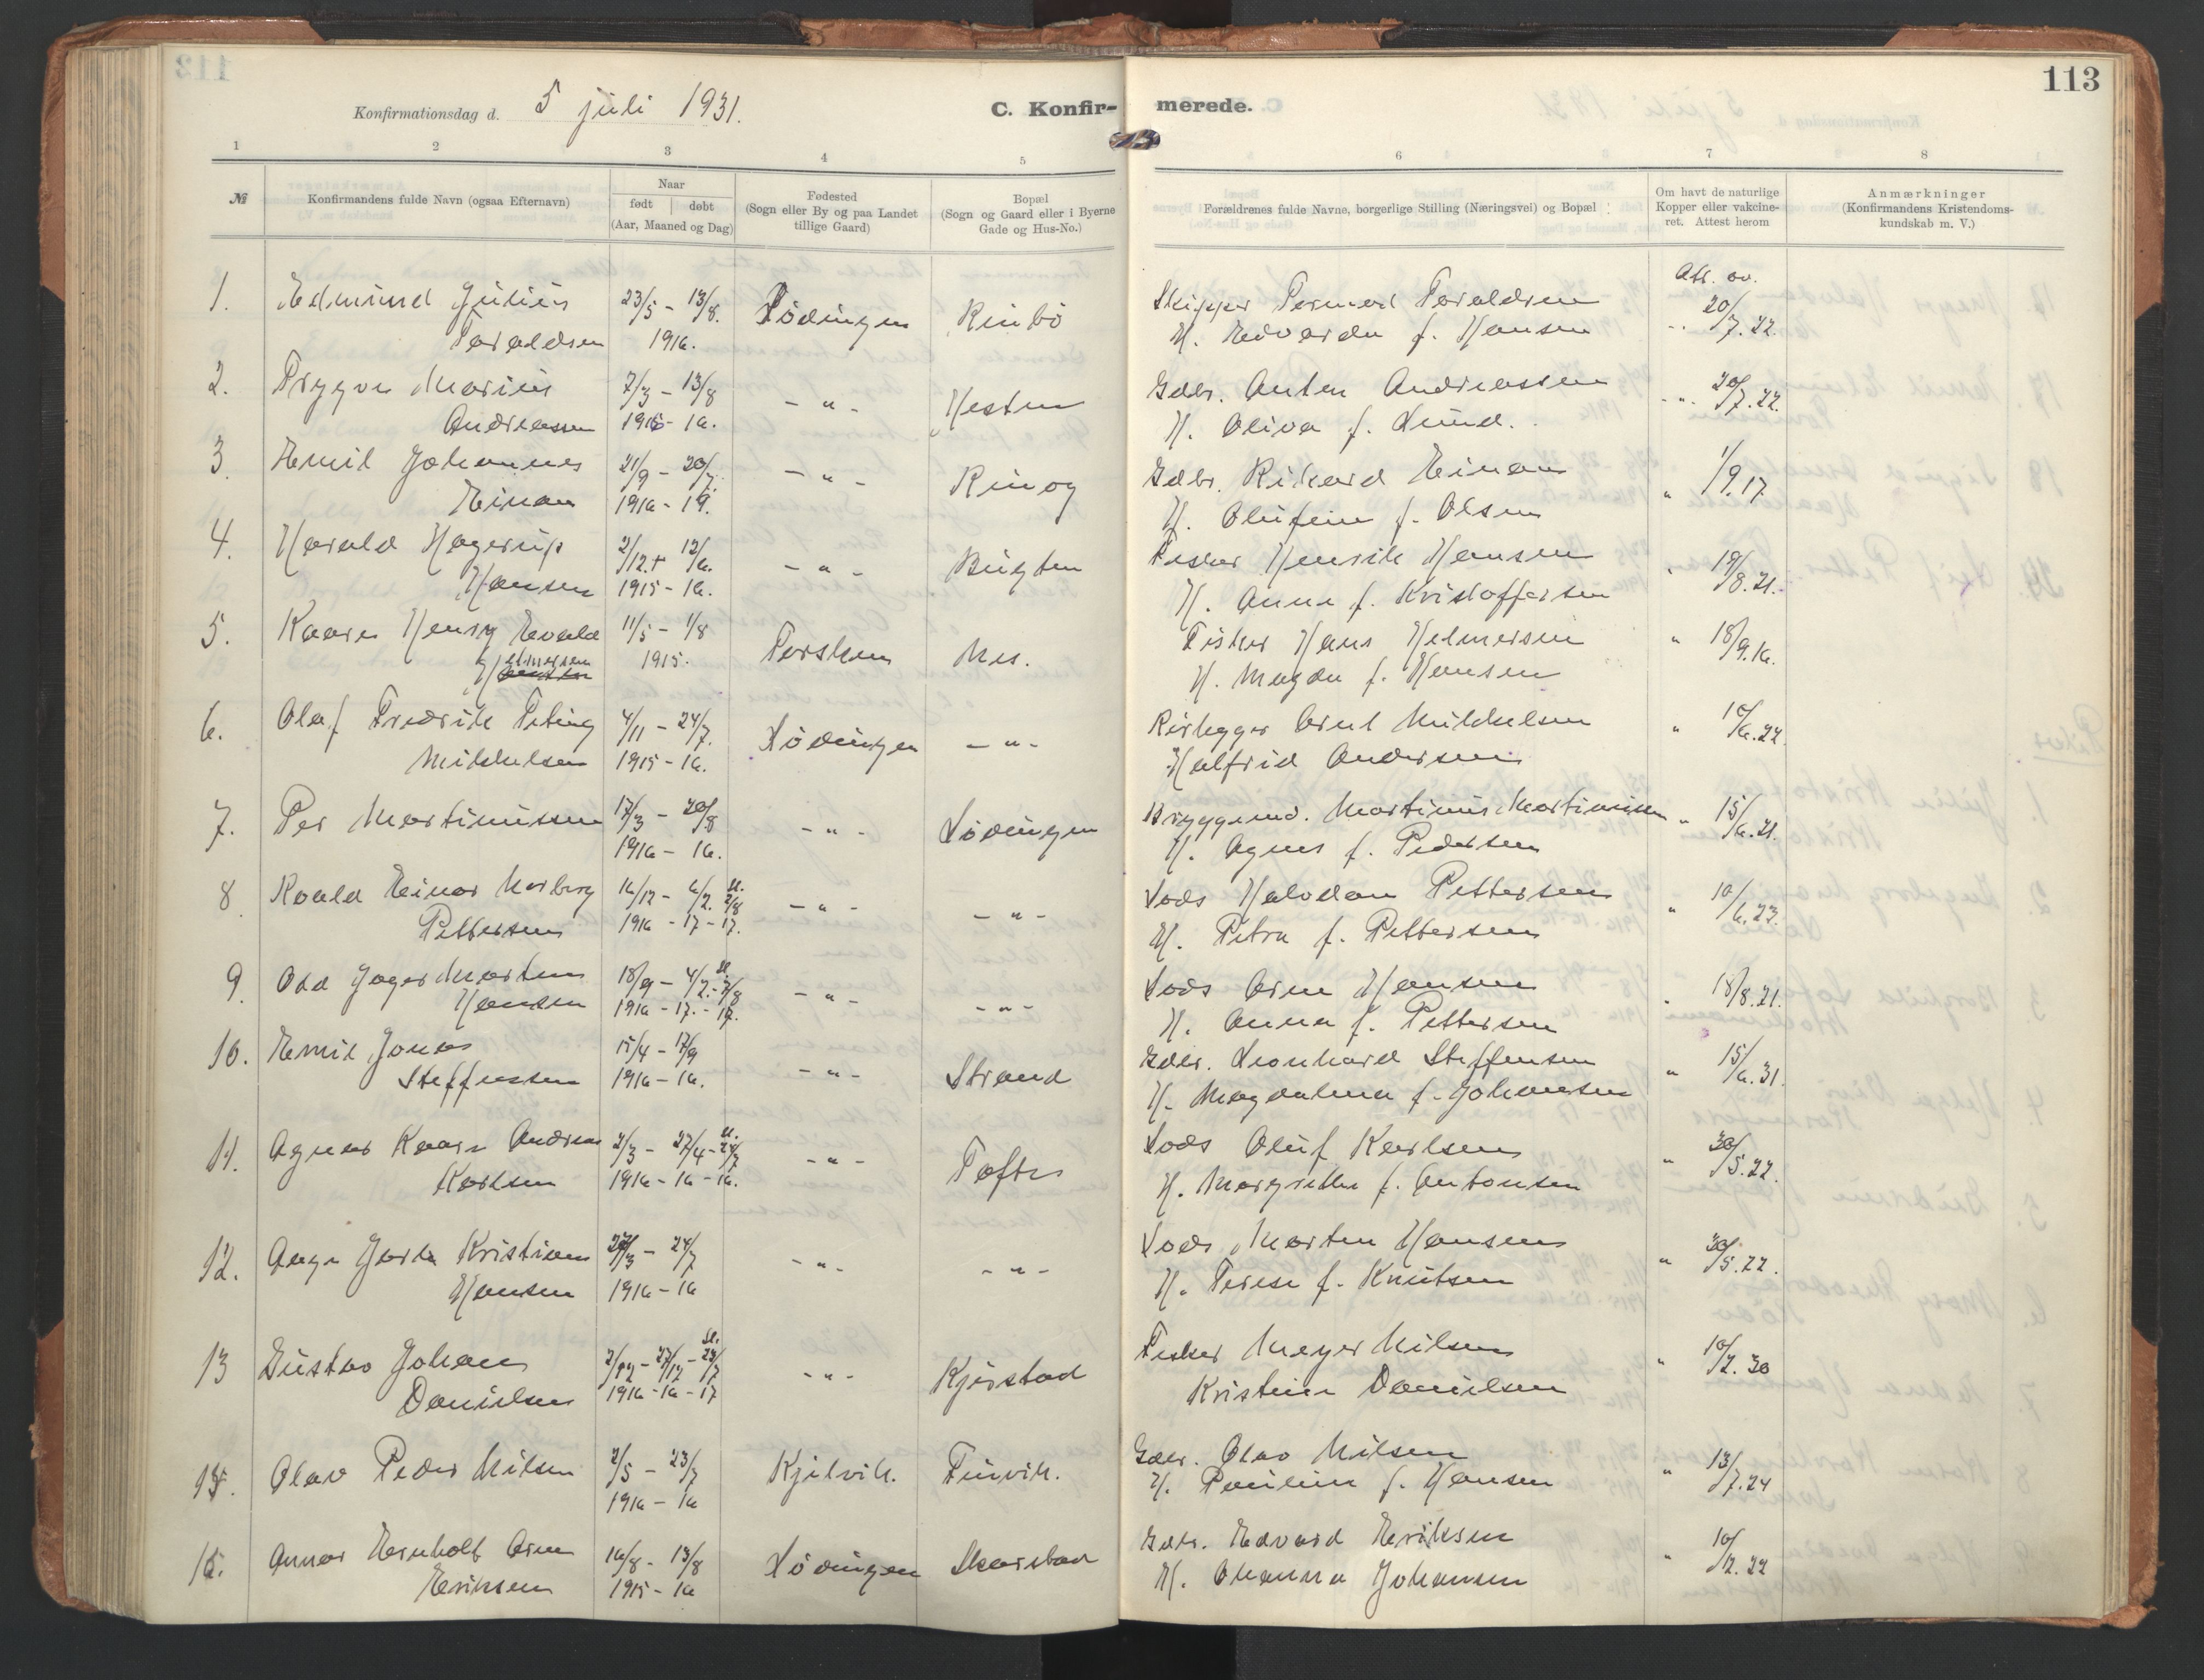 113
Konfirmationsdag d. 5 juli 1931.
C. Konfir-
merede.
1 2 3 4 5 6 7 8
№
Konfirmandens fulde Navn (ogsaa Efternavn)
Naar
født | døbt
(Aar, Maaned og Dag)
Fødested
(Sogn eller By og paa Landet
tillige Gaard)
Bopæl
(Sogn og Gaard eller i Byerne
Gade og Hus-No.)
Forældrenes fulde Navne, borgerlige Stilling (Næringsvei) og Bopæl
Om havt de naturlige
Kopper eller vakcine-
ret. Attest herom
Anmærkninger
(Konfirmandens Kristendoms-
kundskab m. V.)
Att. av.
1. Edmund Julius 23/5 - 13/8. Lødingen Rinbø Skipper Peraldsen 20/7.22.
Peraldsen 1916. H. Edvarda f. Hansen
2. Trygve Marius 7/3 - 13/8 - " - Vesten Gdbr. Anton Andreassen - " - 20/7.22.
Andreassen 1916. H. Oliva f. Lund.
3. Emil Johannes 21/9 - 20/7. - " - Rinøy Gdbr. Rikard Einan " 1/9.17
Einan 1916 - 19. H. Olufine f. Olsen
4. Harald Hagerup 2/12 12/6. - " - Bugten Fisker Henrik Hansen " 19/8.21.
Hansen 1915 - 16. H. Anna f. Kristoffersen
5. Kaare Henry Evald 11/5 - 1/8 Torsken Nes. Fisker Hans Helmersen " 18/9.16.
Helmersen 1915. H. Magda f. Hansen
6. Olaf Fredrik 4/11 - 24/7. Lødingen - " - Arnt Mikkelsen " 10/6.22.
Mikkelsen 1915 - 16. Halfrid Andersen
7. Per Martinussen 17/3 - 20/8 - " - Lødingen Bryggemd. Martinus Martinussen " 15/6.21.
1916 - 16. H. Agnes f. Pedersen
8. Roald Einar Norberg 16/12 - 6/2. 2/8 - " - - " - Lods Halvdan Pettersen " 10/6.23.
Pettersen 1916 - 17 - 17. H. Petra f. Pettersen
9. Odd Morten 18/9 - 4/2. - 2/8 - " - - " - Lods Arne Hansen " 18/8.21.
Hansen 1916 - 17. - 17. H. Anna f. Pettersen
10. Emil Jonas 15/4 - 17/9 - " - Strand Gdbr. Leonhard Steffensen " 15/6.31.
Steffensen 1916 - 16. H. Magdalena f. Johansen
11. Agnar Kaare Andreas 2/3 - 27/4 - 24/7 - " - Tofter Lods Oluf Karlsen " 30/5.22.
Karlsen 1916 - 16 - 16. H. Margrethe f. Antonsen
12. Aage Kristian 24/7 - " - - " - Lods Morten Hansen " 30/5.22.
Hansen 1916 - 16 H. Terese f. Knutsen
13 Gustav Johan 2/12 - 27/12 - 23/7 - " - Kjerstad Fisker Meyer Nilsen " 10/2.30
Danielsen 1916 - 16 - 17 Kristine Danielsen
15. Olav Peder Nilsen 2/5 - 23/7 Kjelvik. Gdbr. Olav Nilsen " 13/7.24
1916 - 16 H. Pauline f. Hansen
16. Annar Arne 16/8 - 13/8 Lødingen Skarstad Gdbr. Edvard Eriksen " 10/12.22
Eriksen 1915 - 16 H. Johansen